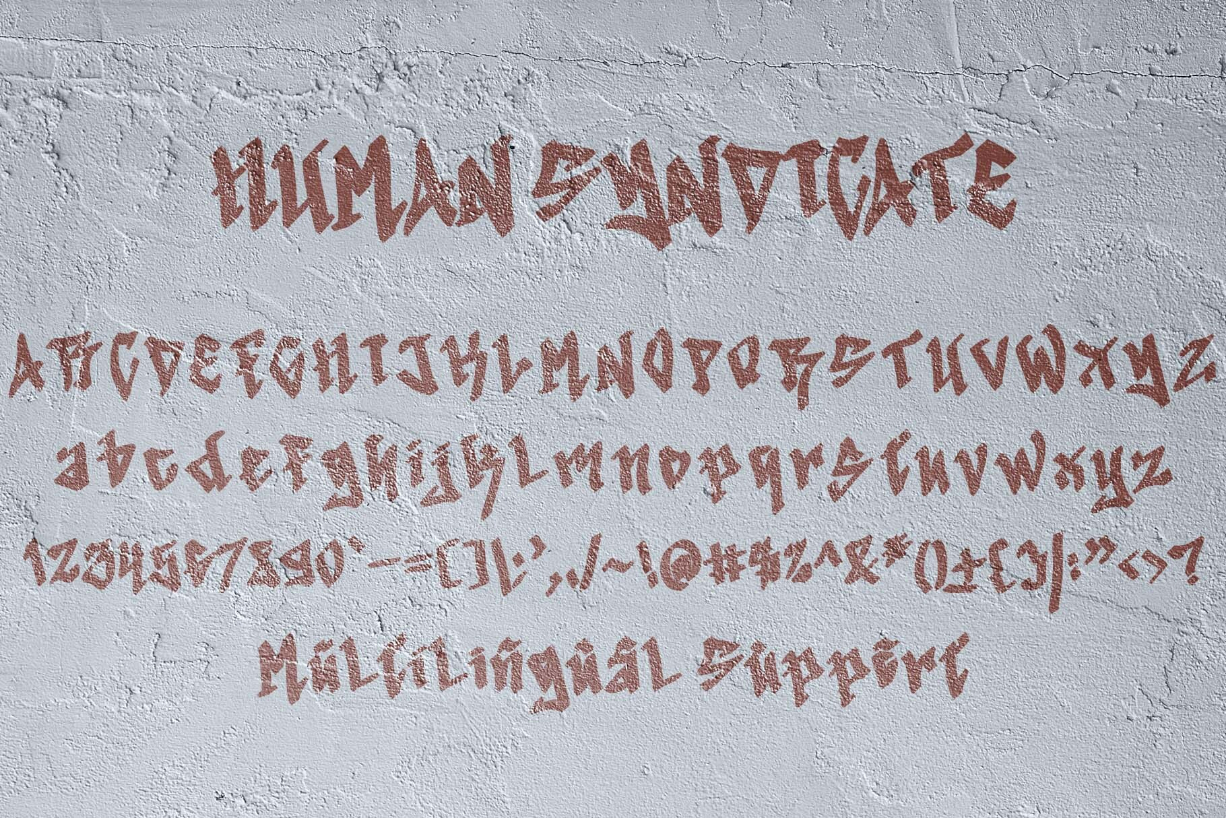 HUMAN SYNDICATE
ABCDEFGHIJKLMNOPQRSTUVWXYZ
abcdefghijklmnopqrstuvwxyz
1234567890`-=[]\;',./~!@#$%^&*()±{}|:"<>?
Multilingual Support